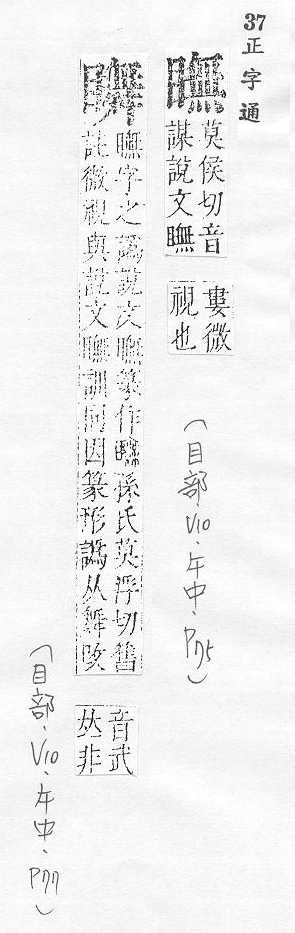 37正字通
瞴
莫侯切音
謀說文瞴
婁微
視也
(目部、V10、午中、P75)
瞴字之譌說文瞴篆作瞴孫氏莫浮切舊
註微視與說文瞴訓同因篆形譌从舞改
音武
𠀤非
(目部、V10、午中、P77)